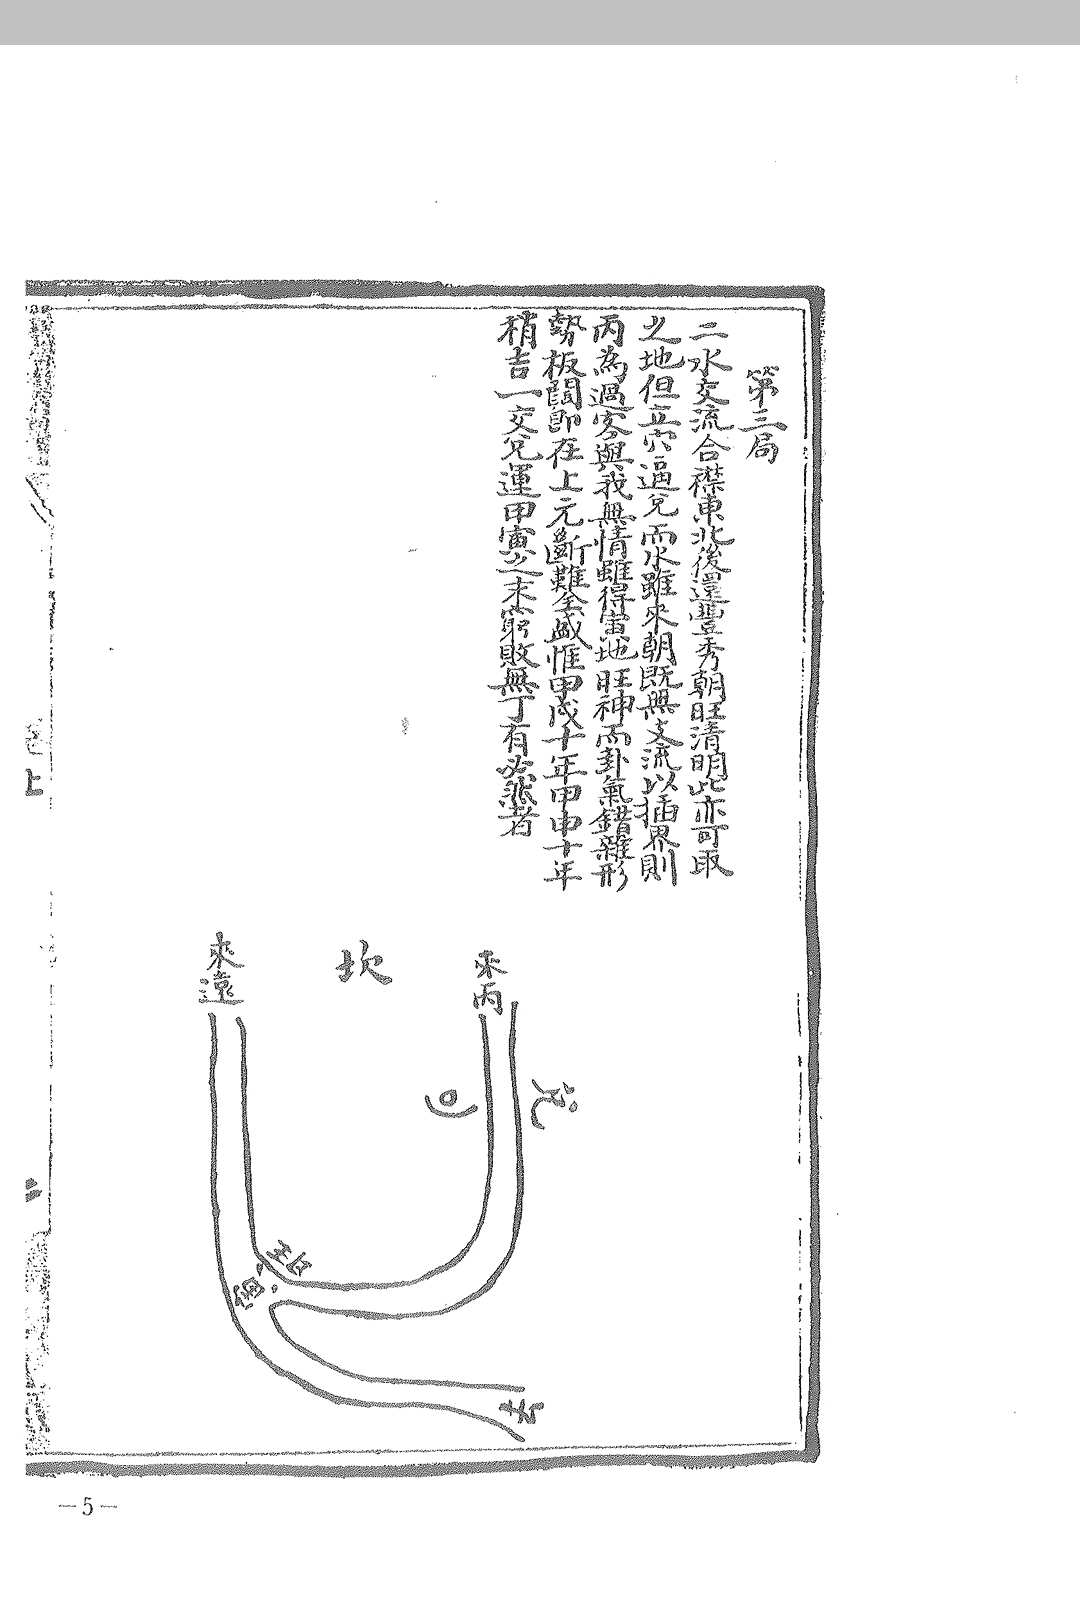 第三局
二水交流合襟東北後還豐秀朝旺清明此亦可取
之地但立穴逼兌而水雖來朝既無支流以插界則
丙為過客與我無情雖得當地旺神而卦氣錯雜形
勢板闊即在上元斷難全盛惟甲戌十年甲申十年
稍吉一交兌運甲寅之末窮敗無丁有必然者
來丙
坎
來遠
兌
旺
去
上
—5—